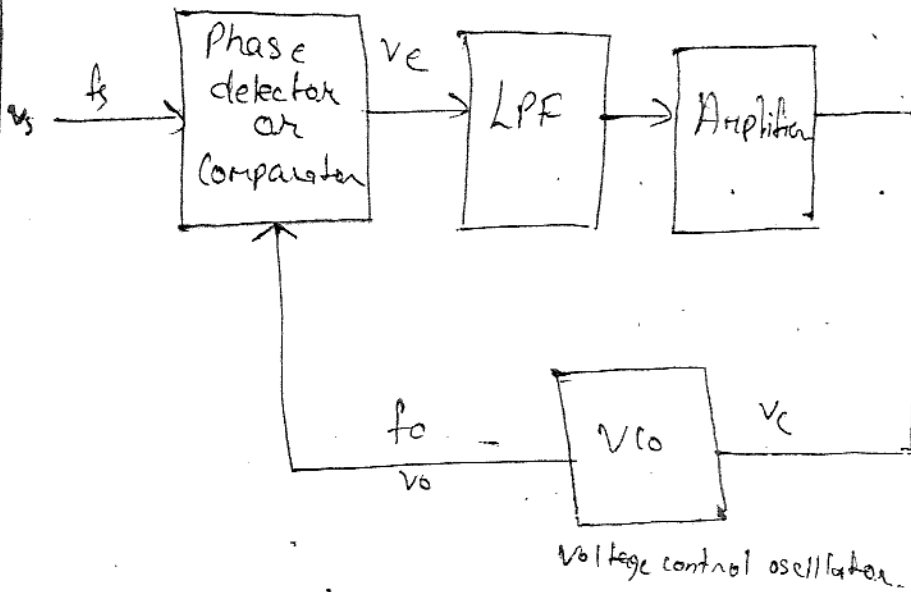 Phase
detector
or
Comparator
vs
fs
Ve
LPF
Amplifier
fo
vo
VCO
Vc
Voltage control oscillator.